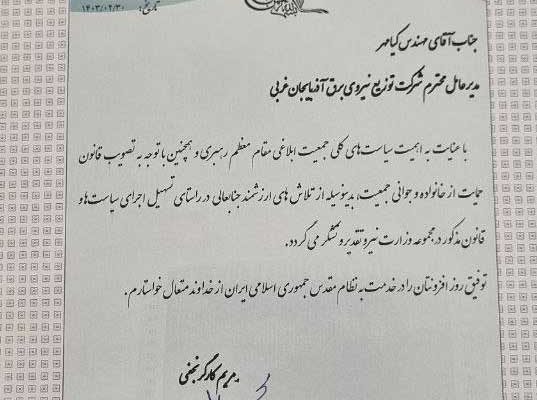 تاریخ: ۱۴۰۳/۰۲/۳۰
جناب آقای مهندس کیامهر
مدیرعامل محترم شرکت توزیع نیروی برق آذربایجان غربی
با عنایت به اهمیت سیاست‌های کلی جمعیت ابلاغی مقام معظم رهبری و همچنین با توجه به تصویب قانون
حمایت از خانواده و جوانی جمعیت، بدینوسیله از تلاش های ارزشمند جنابعالی در راستای تسهیل اجرای سیاست‌ها و
قانون مذکور در مجموعه وزارت نیرو تقدیر و تشکر می گردد.
توفیق روز افزونتان را در خدمت به نظام مقدس جمهوری اسلامی ایران از خداوند متعال خواستارم.
مریم کارگر نجفی